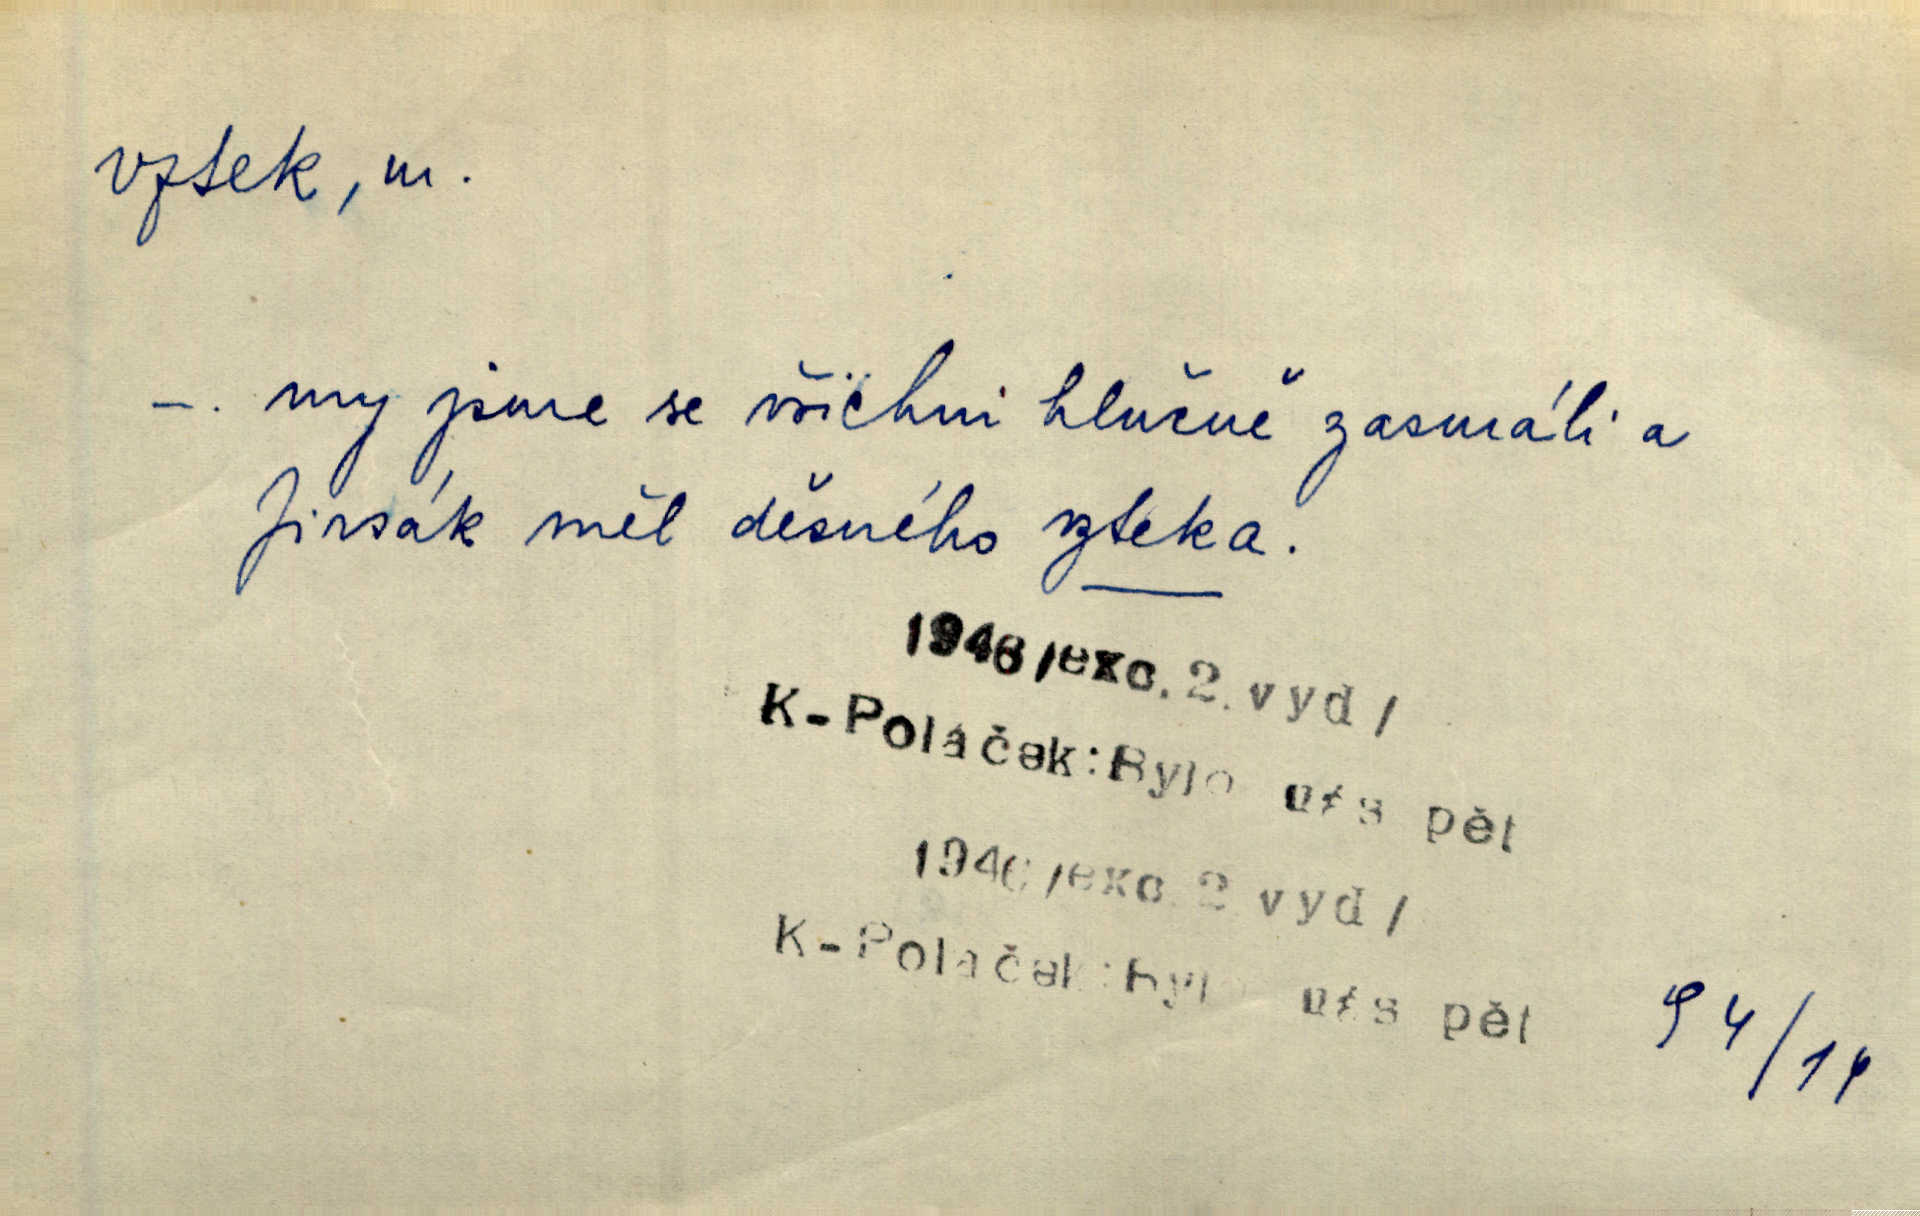 vztek, m.
–. my jsme se všichni hlučně zasmáli a
Jirsák měl děsného vzteka.
1946/exc. 2. vyd/
K-Poláček:Bylo nás pět
1946/exc. 2 vyd/
K-Poláček:Bylo nás pět
94/14